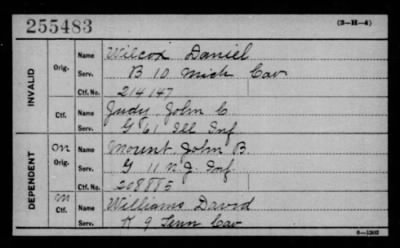 255483
(3-H-4)
INVALID
Orig.
Name Wilcox Daniel
Serv. B 10 Mich Cav
Ctf. No. 214147
Ctf.
Name Judy, John C.
Serv. G 61 Ill Inf
DEPENDENT
Orig.
Name Mount, John B.
Serv. G 11 N.J. Inf.
Ctf. No. 208885
Ctf.
Name Williams David
Serv. K 9 Tenn Cav